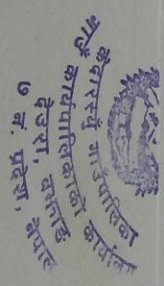 केदारस्यूँ गाउँपालिका
गाउँ कार्यपालिकाको कार्यालय
देउरा, बझाङ
७ नं. प्रदेश, नेपाल